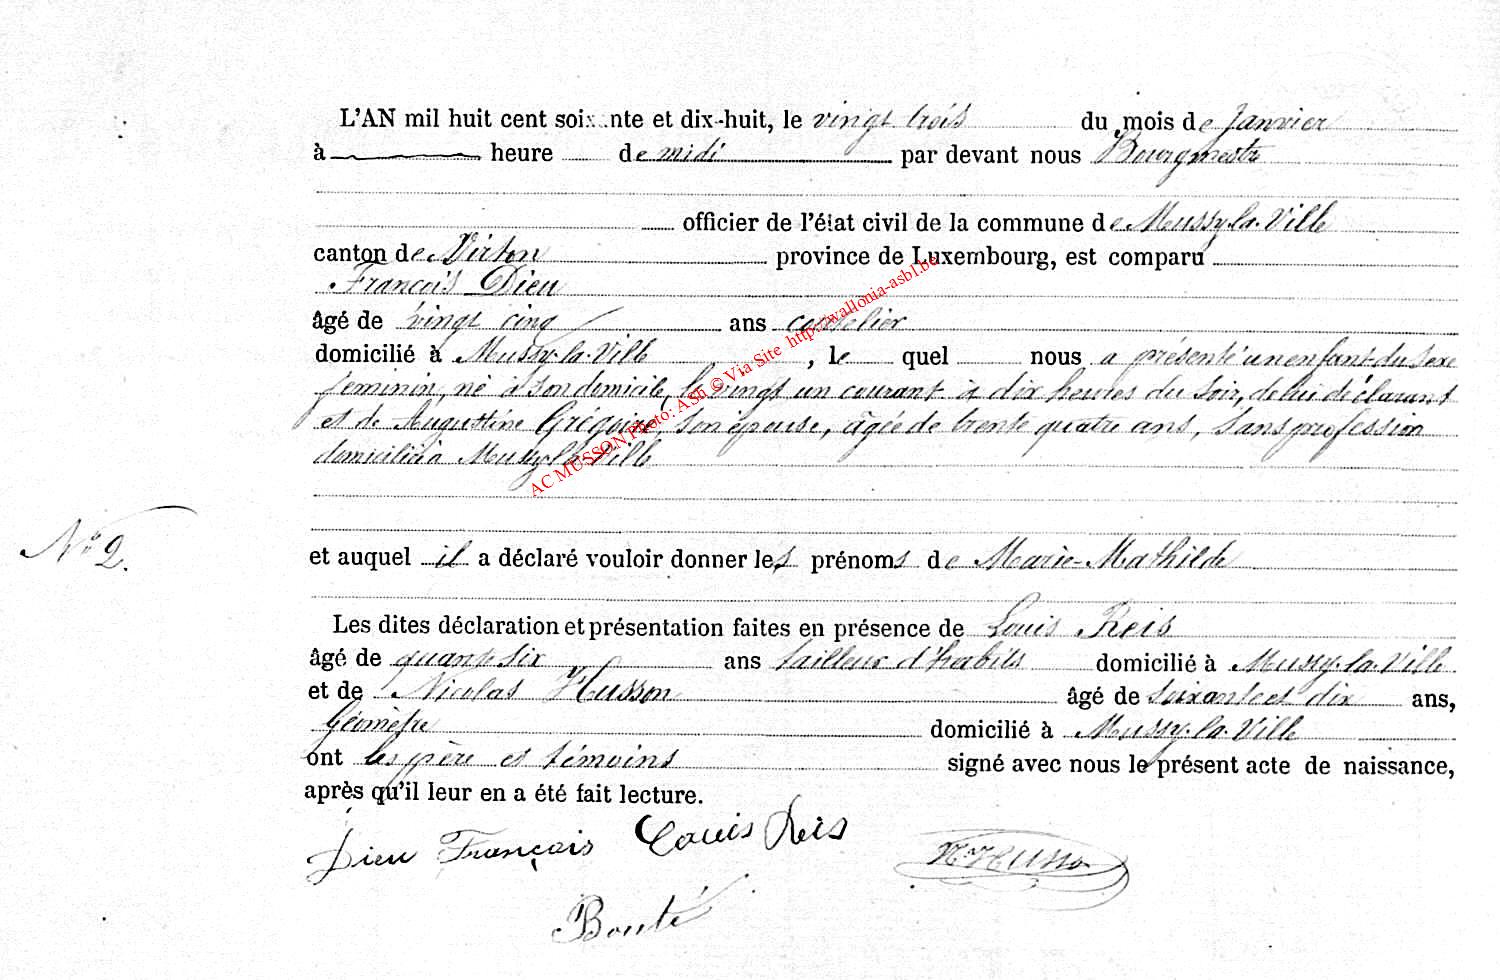 L'AN mil huit cent soixante et dix-huit, le vingt trois du mois de Janvier
à heure de midi par devant nous Bourgmestre
officier de l'état civil de la commune de Mussy-la-Ville
canton de Virton province de Luxembourg, est comparu
François Dieu
âgé de vingt cinq ans
domicilié à Mussy-la-Ville, le quel nous a présenté un enfant du sexe
feminin, né à son domicile, le vingt un courant à dix heures du soir, de lui déclarant
et de Augustine Grégoire, son épouse, âgée de trente quatre ans, sans profession
domiciliée à Mussy-la-Ville
AC MUSSON Photo: ASn © Via Site http://wallonia-asbl.be
N° 2.
et auquel il a déclaré vouloir donner les prénoms de Marie-Mathilde
Les dites déclaration et présentation faites en présence de Louis Reis
âgé de quarante six ans tailleur d'habits domicilié à Mussy-la-Ville
et de Nicolas Husson âgé de soixante et dix ans,
Géomètre domicilié à Mussy-la-Ville
ont les père et témoins signé avec nous le présent acte de naissance,
après qu'il leur en a été fait lecture.
Dieu François Louis Reis N. Husson
Bouté